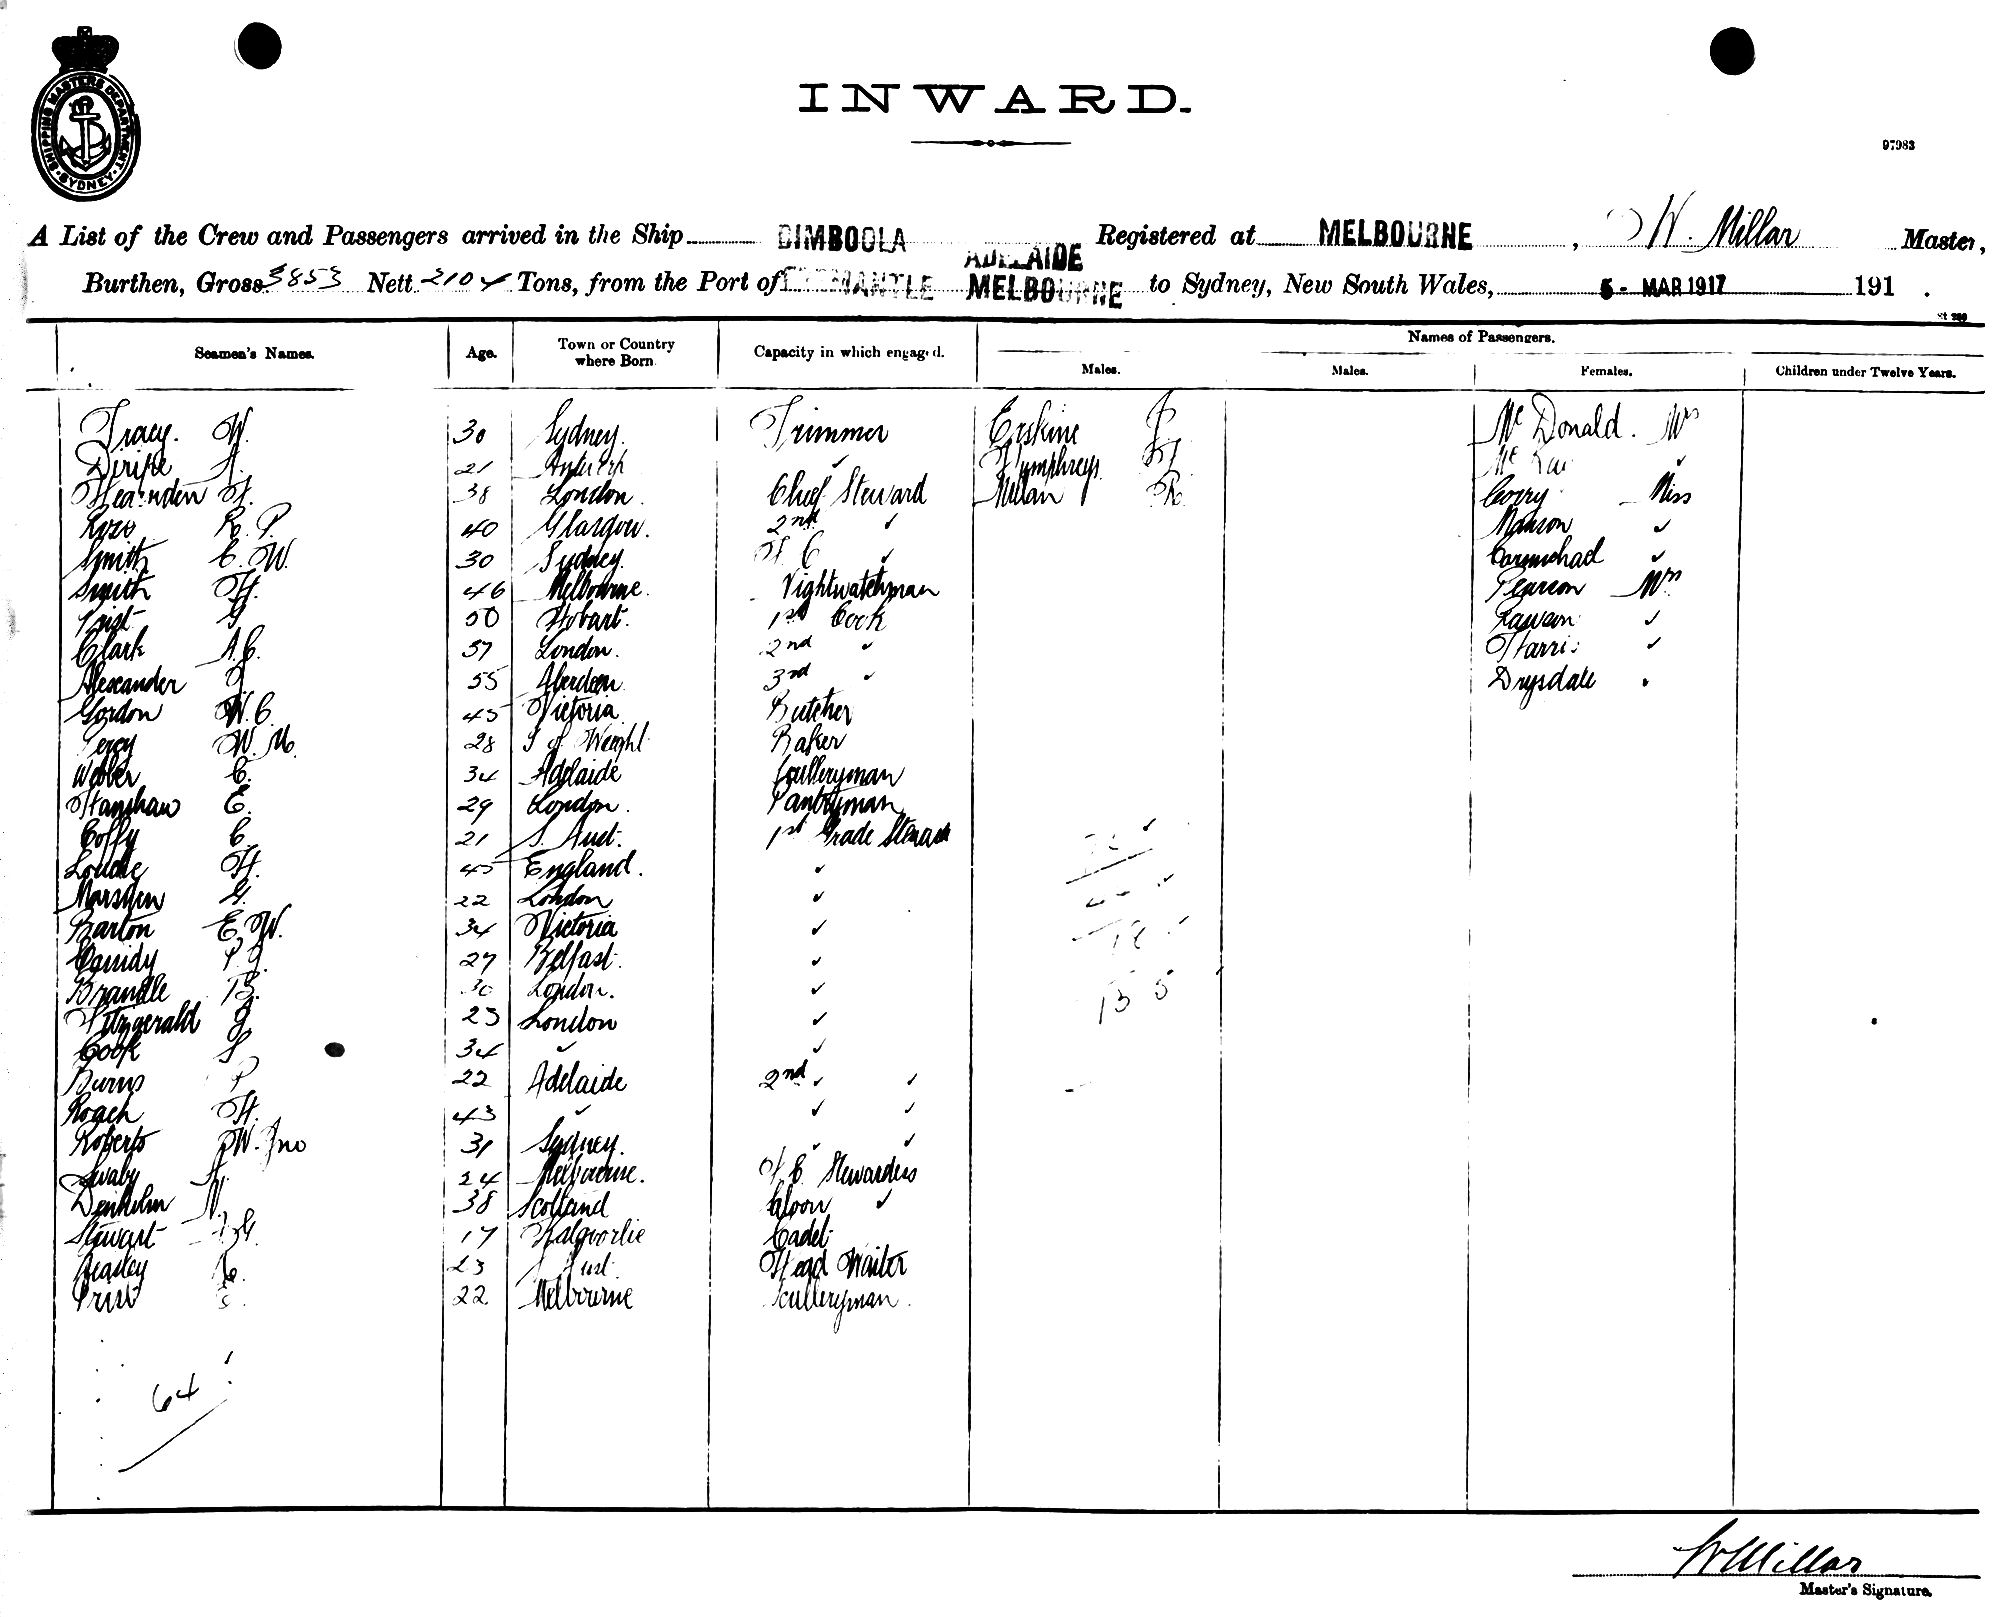 SHIPPING MASTERS DEPARTMENT SYDNEY
INWARD.
97983
A List of the Crew and Passengers arrived in the Ship DIMBOOLA Registered at MELBOURNE, W. Millar Master,
ADELAIDE
Burthen, Gross 3853 Nett 2104 Tons, from the Port of FREMANTLE MELBOURNE to Sydney, New South Wales, 5 - MAR 1917 191 .
Seamen's Names. Age. Town or Country where Born. Capacity in which engaged. Names of Passengers.
Males. Males. Females. Children under Twelve Years.
Tracy. W. 30 Sydney. Trimmer Erskine J Mc Donald. Mrs
A. 21 Antwerp ✓ Humphreys H Mc Rae ✓
Hearnden H. 38 London. Chief Steward Millan R. Corry Miss
Ross R. P. 40 Glasgow. 2nd ✓ Manson ✓
Smith C. W. 30 Sydney. F C ✓ Carmichael ✓
Smith H. 46 Melbourne. Nightwatchman Pearson Mrs
G 50 Hobart. 1st Cook Lawson ✓
Clark A. C. 37 London. 2nd ✓ Harris ✓
Alexander J 55 Aberdeen 3rd ✓ Drysdale
Gordon W. C. 45 Victoria Butcher
Percy W. M. 28 I of Weight Baker
Weber C. 34 Adelaide Sculleryman
Hanshaw E. 29 London. Pantryman
Coffy C. 21 S. Aust. 1st Grade Steward
H. 45 England. ✓
Marsden G. 22 London ✓
Barton E. W. 34 Victoria ✓
Cassidy P. J. 27 Belfast. ✓
Brandle B. 30 London. ✓
Fitzgerald J 23 London ✓
Cook S 34 ✓ ✓
Burns P 22 Adelaide 2nd ✓ ✓
Roach H. 43 ✓ ✓ ✓
Roberts W. Jno 31 Sydney. ✓ ✓
Swaby A. 24 Melbourne. F. C. Stewardess
Denholm N. 38 Scotland Saloon ✓
Stewart 17 Kalgoorlie Cadet
23 S Aust. Head Waiter
22 Melbourne Sculleryman.
64
W Millar
Master's Signature.